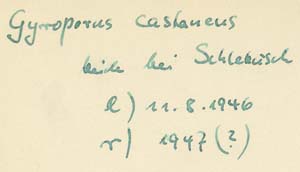 Gyroporus castaneus
beide bei Schlebusch
l) 11.8.1946
r) 1947 (?)